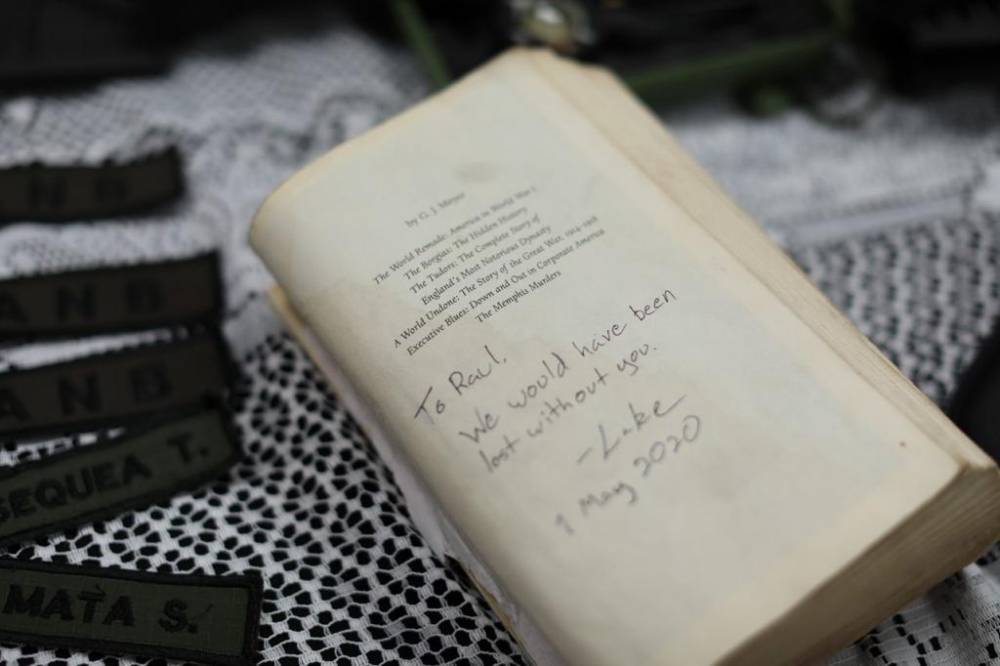 by G. J. Meyer
The World Remade: America in World War I
The Borgias: The Hidden History
The Tudors: The Complete Story of
England's Most Notorious Dynasty
A World Undone: The Story of the Great War, 1914–1918
Executive Blues: Down and Out in Corporate America
The Memphis Murders
To Raul,
We would have been
lost without you.
-Luke
1 May 2020
ANB
ANB
ANB
SEQUEA T.
MATA S.